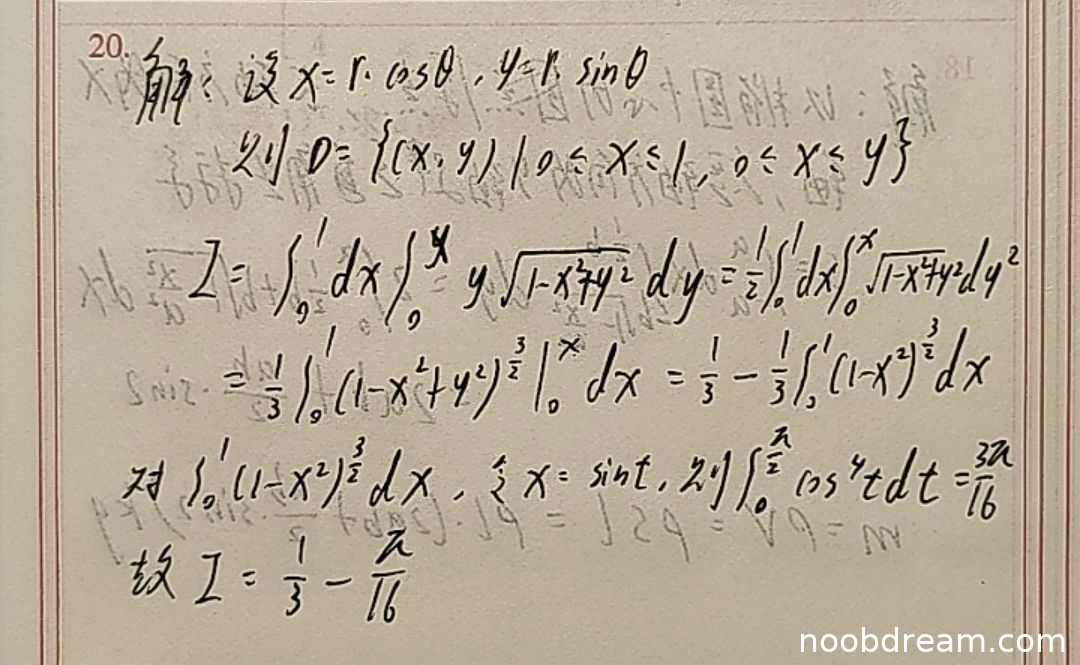 20.
解：设 x=r·cosθ，y=r·sinθ
则 D={(x,y)|0≤x≤1，0≤x≤y}
I=∫₀¹dx∫₀ˣ y√(1-x²+y²) dy=½∫₀¹dx∫₀ˣ√(1-x²+y²)dy²
=⅓∫₀¹(1-x²+y²)^(3/2)|₀ˣ dx=⅓-⅓∫₀¹(1-x²)^(3/2)dx
对∫₀¹(1-x²)^(3/2)dx，令x=sint，则∫₀^(π/2)cos⁴tdt=3π/16
故 I=1/3-π/16
noobdream.com